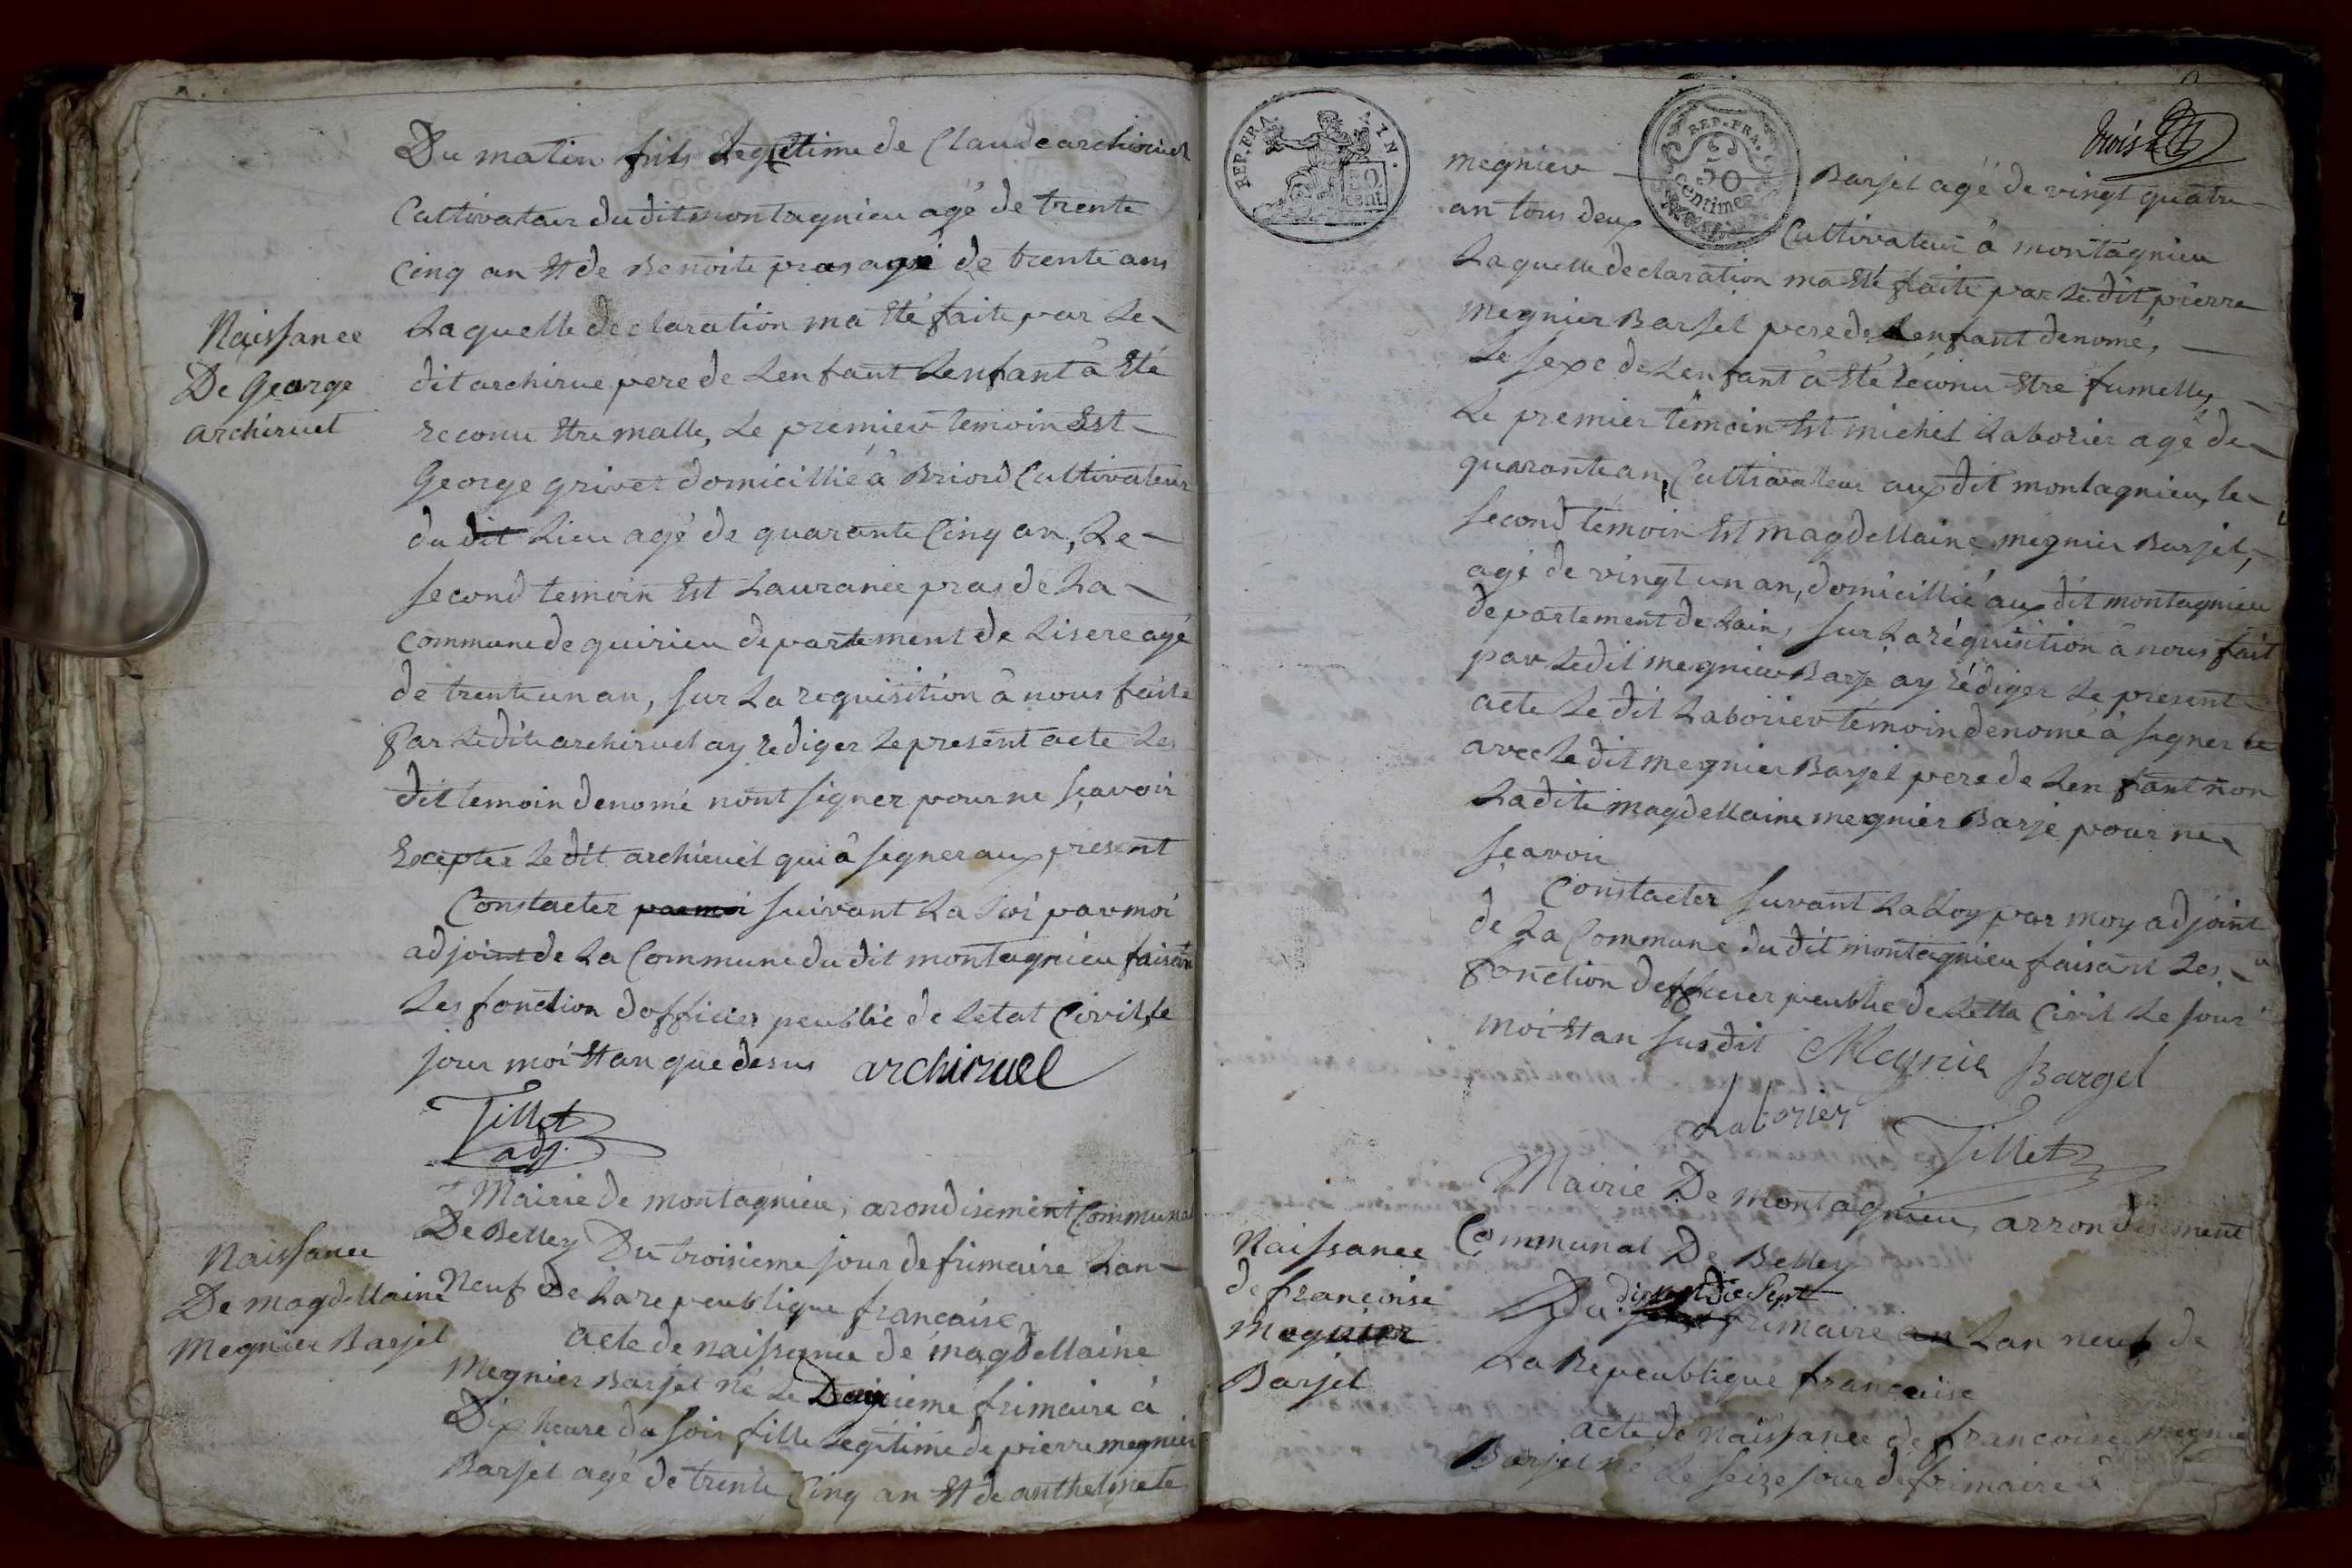 Du matin fils Legetime de Claude archiruel
Cultivataur du dit montagnieu agé de trente
Cinq an Et de Benoite pras agé de trente ans
Naissance
De George
archiruel
Laquelle declaration ma Eté faite par Le
dit archirue pere de Lenfant Lenfant à Eté
reconu Etre malle, Le premier temoin Est
George grivet domicillié à Briord Cultivateur
du dit Lieu agé de quarante Cinq an, Le
second temoin Est Laurance pras de La
commune de quirieu departement de Lisere agé
de trente un an, sur La requisition à nous faite
Par Ledite archiruel ay rediger Le present acte Les
dit temoin denomé nont signer pour ne sçavoir
Excepter Le dit archieuel qui à signer aux present
Constacter par moi suivant La Loi par moi
adjoint de La Commune du dit montagnieu faisant
Les fonction dofficier peublic de Letat Civil, le
jour moi Et an que desus archiruel
Tillet
adj.
Mairie de montagnieu, arondisement Communal
De Belley Du troisieme jour de frimaire Lan
Neuf De La repeublique francaise
Naissance
De magdellaine
Megnier Barjel
acte de naissance de magdellaine
Megnier Barjel né Le Deuxieme frimaire à
Dix heure du soir fille Legitime de pierre megnier
Barjel agé de trente Cinq an Et de anthelmete
REP. FRA.
50
cent.
REP. FRA.
50
centimes
trois
megnier Barjel agé de vingt quatre
an tous deux Cultivateur à montagnieu
Laquelle declaration ma Eté faite par Le dit pierre
Megnier Barjel pere de Lenfant denomé,
Le sexe de Lenfant à Eté réconu Etre fumelle,
Le premier témoin Est michel Laborier agé de
quarante an, Cultivateur aux dit montagnieu, le
second témoin Est magdellaine megnier Barjel,
agé de vingt un an, domicillié aux dit montagnieu
departement de Lain, sur La réquisition à nous fait
par Ledit megnier Barje ay rédiger Le present
acte Le dit Laborier témoin denomé à signer
avec Le dit megnier Barjel pere de Len fant non
Ladite magdellaine megnier Barje pour ne
sçavoir
Constacter suvant La Loy par moy adjoint
de La Commune du dit montagnieu faisant Les
fonction defficier peublic de Letta Civil Le jour
moi Et an susdit Meynier Bargel
Laborier
Tillet
Mairie De montagnieu, arrondisement
Communal De Belley
Naissance
de francoise
Megnier
Barjel
Du dix Sept frimaire an Lan neuf de
La Repeublique francaise
acte de naissance de francoise megnie
Barjel né Le seize jour de frimaire à